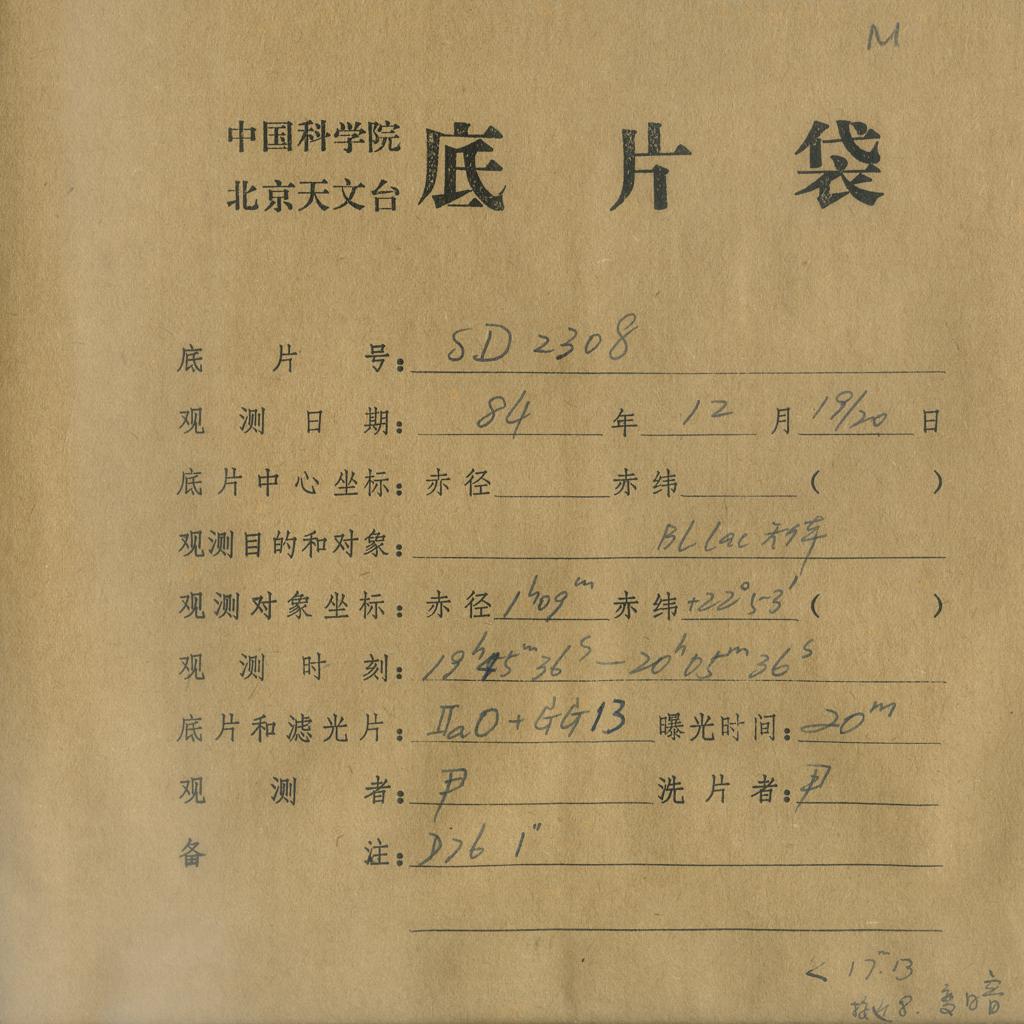 M
中国科学院
北京天文台
底片袋
底片号: SD 2308
观测日期: 84 年 12 月 19/20 日
底片中心坐标: 赤径 赤纬 ( )
观测目的和对象: BL Lac
观测对象坐标: 赤径 1ʰ09ᵐ 赤纬 +22°53′ ( )
观测时刻: 19ʰ45ᵐ36ˢ — 20ʰ05ᵐ36ˢ
底片和滤光片: ⅡaO + GG13 曝光时间: 20ᵐ
观测者: 尹 洗片者: 尹
备注: D76 1″
< 17ᵐ.13
接近8. 变暗